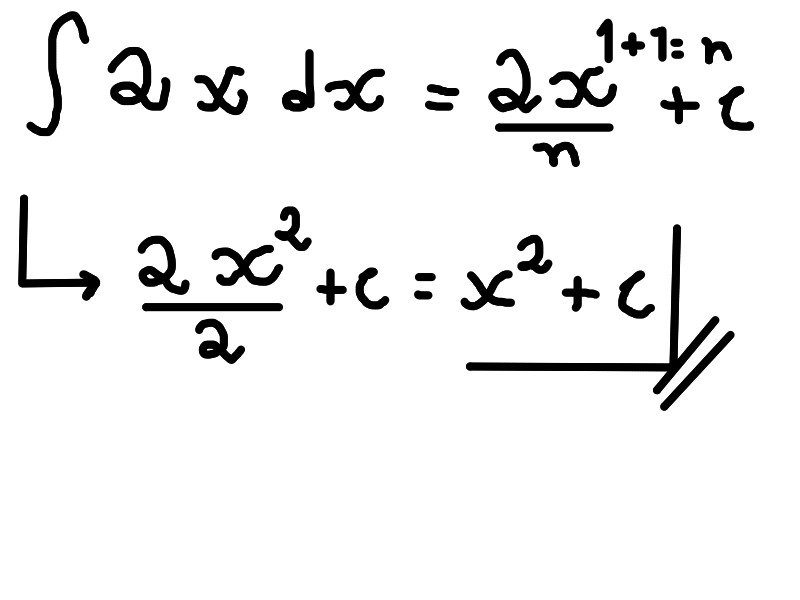 ∫ 2x dx = 2x^(1+1=n)/n + c
2x^2/2 + c = x^2 + c